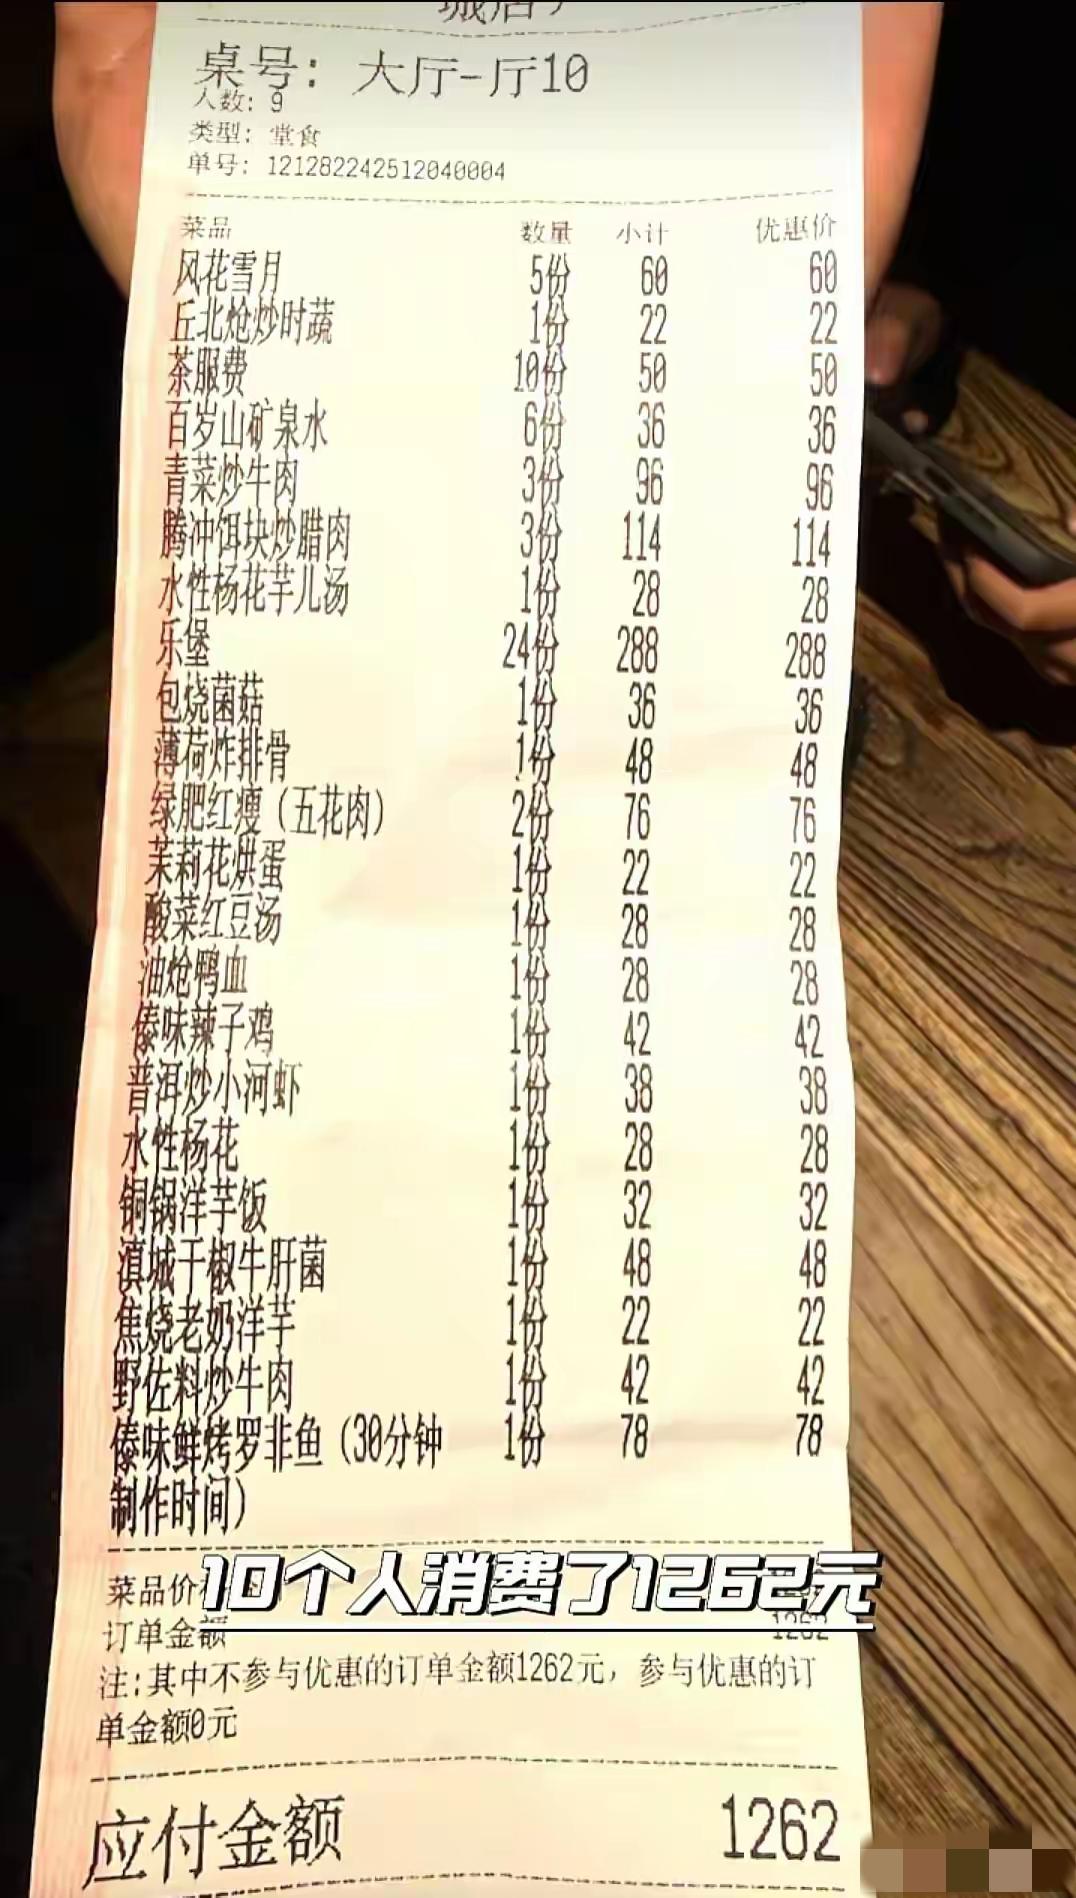 桌号: 大厅-厅10
人数: 9
类型: 堂食
单号: 121282242512040004
菜品 数量 小计 优惠价
风花雪月 5份 60 60
丘北炝炒时蔬 1份 22 22
茶服费 10份 50 50
百岁山矿泉水 6份 36 36
青菜炒牛肉 3份 96 96
腾冲饵块炒腊肉 3份 114 114
水性杨花芋儿汤 1份 28 28
乐堡 24份 288 288
包烧菌菇 1份 36 36
薄荷炸排骨 1份 48 48
绿肥红瘦(五花肉) 2份 76 76
茉莉花烘蛋 1份 22 22
酸菜红豆汤 1份 28 28
油炝鸭血 1份 28 28
傣味辣子鸡 1份 42 42
普洱炒小河虾 1份 38 38
水性杨花 1份 28 28
铜锅洋芋饭 1份 32 32
滇城干椒牛肝菌 1份 48 48
焦烧老奶洋芋 1份 22 22
野佐料炒牛肉 1份 42 42
傣味鲜烤罗非鱼(30分钟 1份 78 78
制作时间)
10个人消费了1262元
菜品价
订单金额 1262
注:其中不参与优惠的订单金额1262元, 参与优惠的订
单金额0元
应付金额 1262